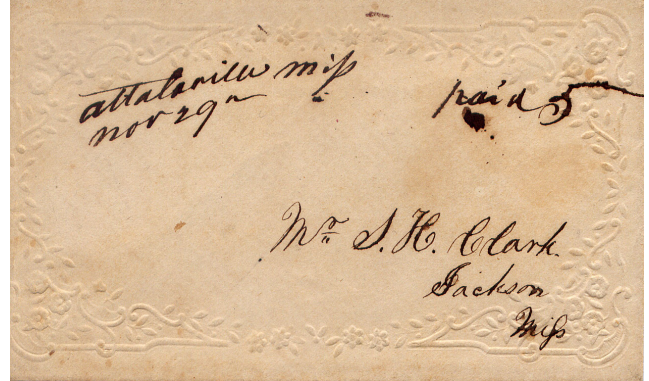 attalaville miss
nov 29th
paid 5
Mr. S. H. Clark.
Jackson
Miss